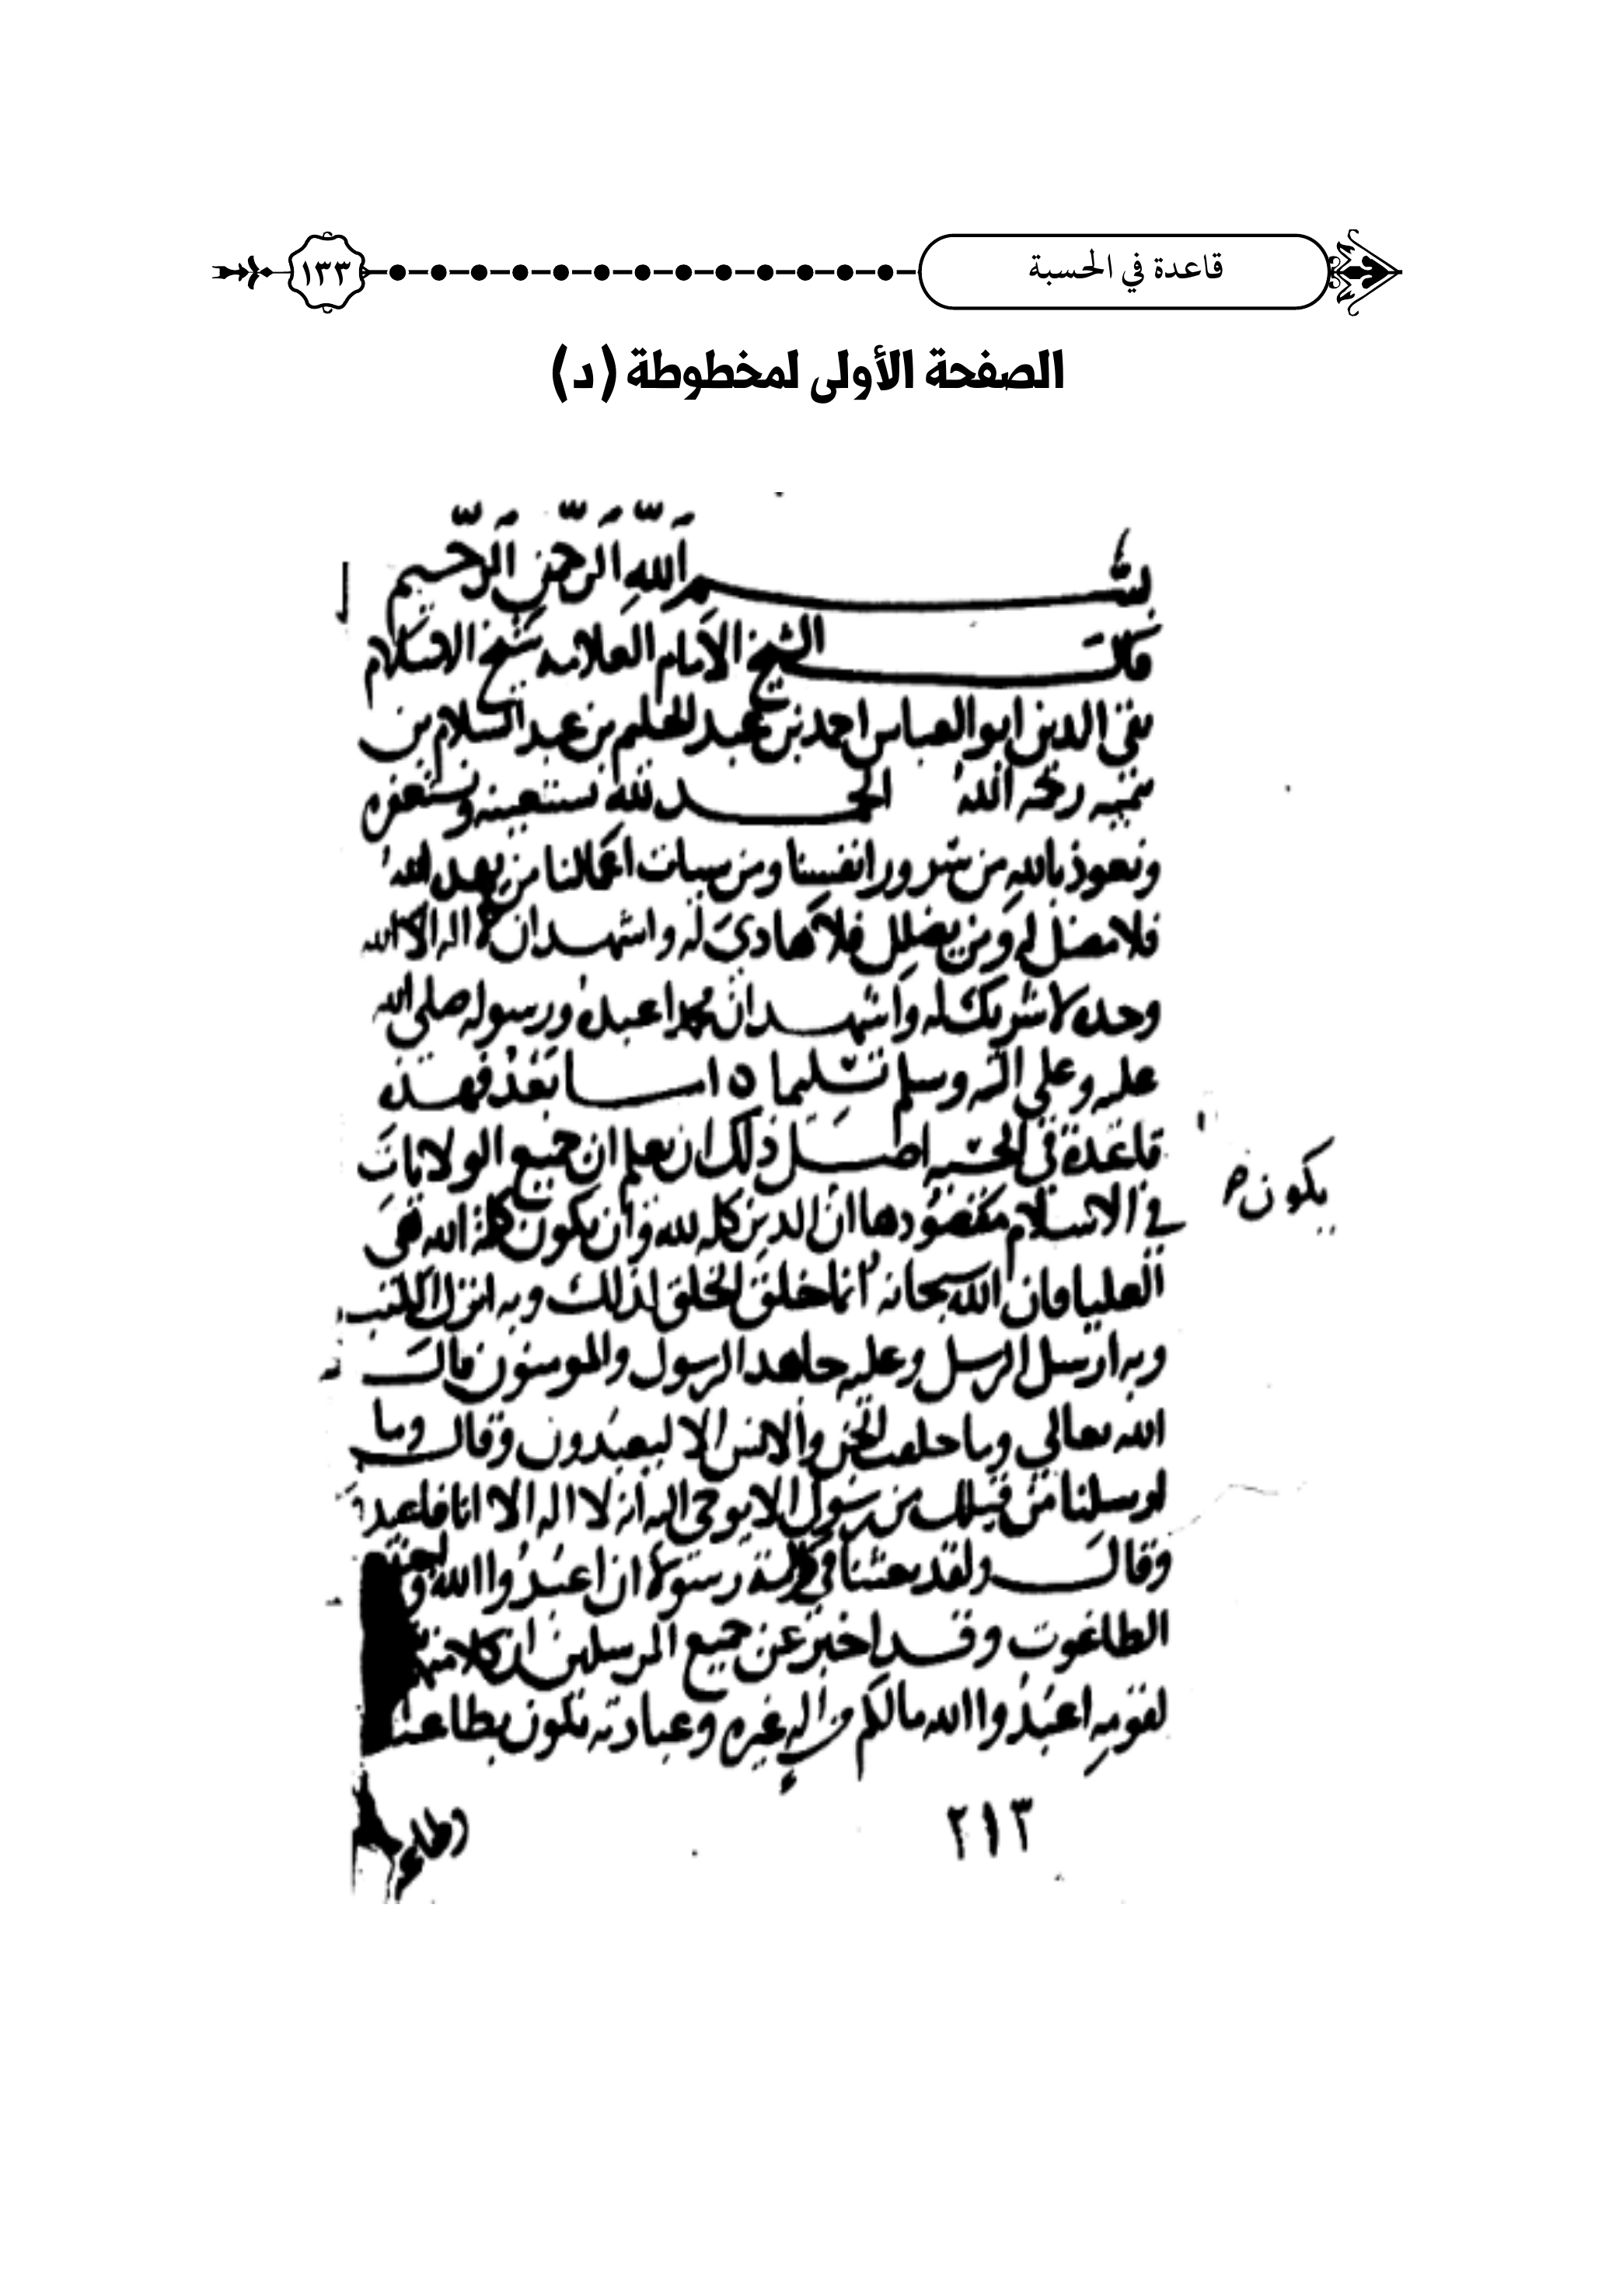 قاعدة في الحسبة
١٣٣
الصفحة الأولى لمخطوطة (د)
بسم الله الرحمن الرحيم
قال الشيخ الامام العلامه شيخ الاسلام
تقي الدين ابو العباس احمد بن عبد الحليم بن عبد السلام بن
تيميه رحمه الله الحمد لله نستعينه ونستغفره
ونعوذ بالله من شرور انفسنا ومن سيات اعمالنا من يهد الله
فلا مضل له ومن يضلل فلا هادي له واشهد ان لا اله الا الله
وحده لا شريك له واشهد ان محمدا عبده ورسوله صلى الله
عليه وعلى اله وسلم تسليما ٥ اما بعد فهذه
قاعدة في الحسبه اصل ذلك ان يعلم ان جميع الولايات
في الاسلام مقصودها ان الدين كله لله وان تكون كلمة الله هي
يكون ص
العليا فان الله سبحانه انما خلق الخلق لذلك وبه انزل الكتب
وبه ارسل الرسل وعليه جاهد الرسول والمومنون قال
الله تعالى وما خلقت الجن والانس الا ليعبدون وقال وما
ارسلنا من قبلك من رسول الا يوحى اليه انه لا اله الا انا فاعبدون
وقال ولقد بعثنا في كل امة رسولا ان اعبدوا الله و
الطاغوت وقد اخبر عن جميع المرسلين ان كلا منهم
لقومه اعبدوا الله مالكم من اله غيره وعبادته تكون بطاعته
٢١٣